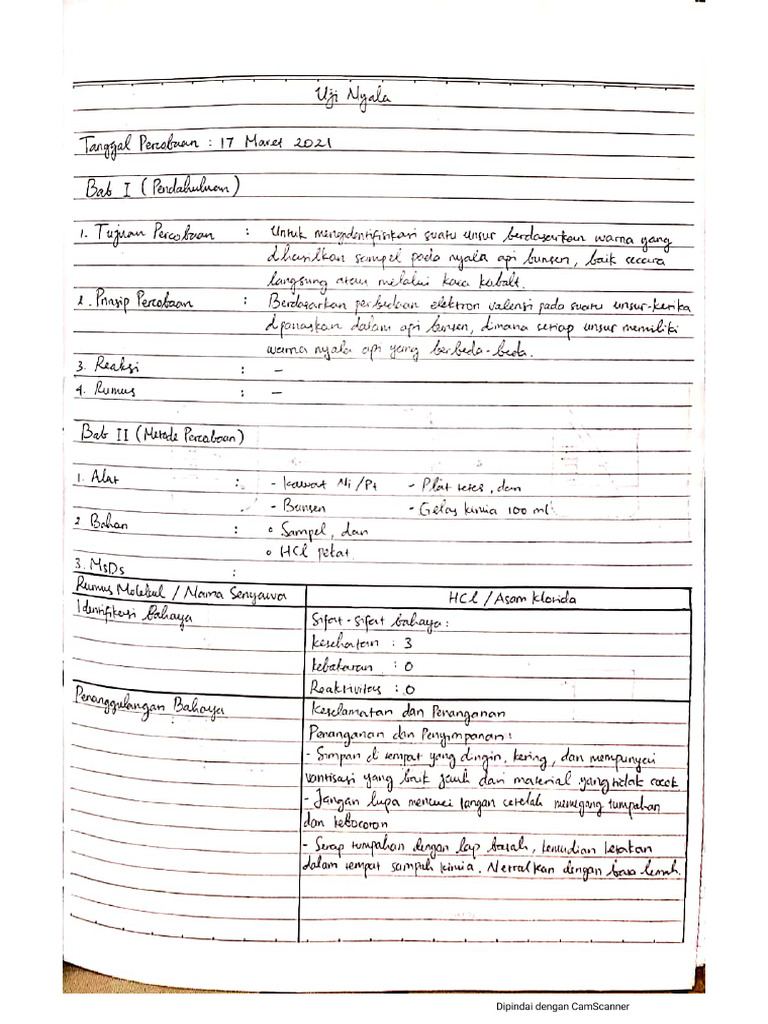 Uji Nyala
Tanggal Percobaan : 17 Maret 2021
Bab I (Pendahuluan)
1. Tujuan Percobaan : Untuk mengidentifisikasi suatu unsur berdasarkan warna yang
dihasilkan sampel pada nyala api bunsen, baik secara
langsung atau melalui kaca kobalt.
2. Prinsip Percobaan : Berdasarkan perbedaan elektron valensi pada suatu unsur ketika
dipanaskan dalam api bunsen, dimana setiap unsur memiliki
warna nyala api yang berbeda-beda.
3. Reaksi : -
4. Rumus : -
Bab II (Metode Percobaan)
1. Alat : - Kawat Ni/Pt - Plat tetes, dan
- Bunsen - Gelas kimia 100 ml
2 Bahan : • Sampel, dan
• HCl pekat
3. MSDS :
Rumus Molekul / Nama Senyawa HCl / Asam Klorida
Identifikasi Bahaya Sifat-sifat bahaya :
Kesehatan : 3
kebakaran : 0
Reaktivitas : 0
Penanggulangan Bahaya Keselamatan dan Penanganan
Penanganan dan Penyimpanan :
- Simpan di tempat yang dingin, kering, dan mempunyai
vantisasi yang baik jauh dari material yang tidak cocok
- Jangan lupa mencuci tangan setelah memegang tumpahan
dan kebocoran
- Serap tumpahan dengan lap basah, kemudian letakan
dalam tempat sampah kimia. Netralkan dengan basa lemah.
Dipindai dengan CamScanner